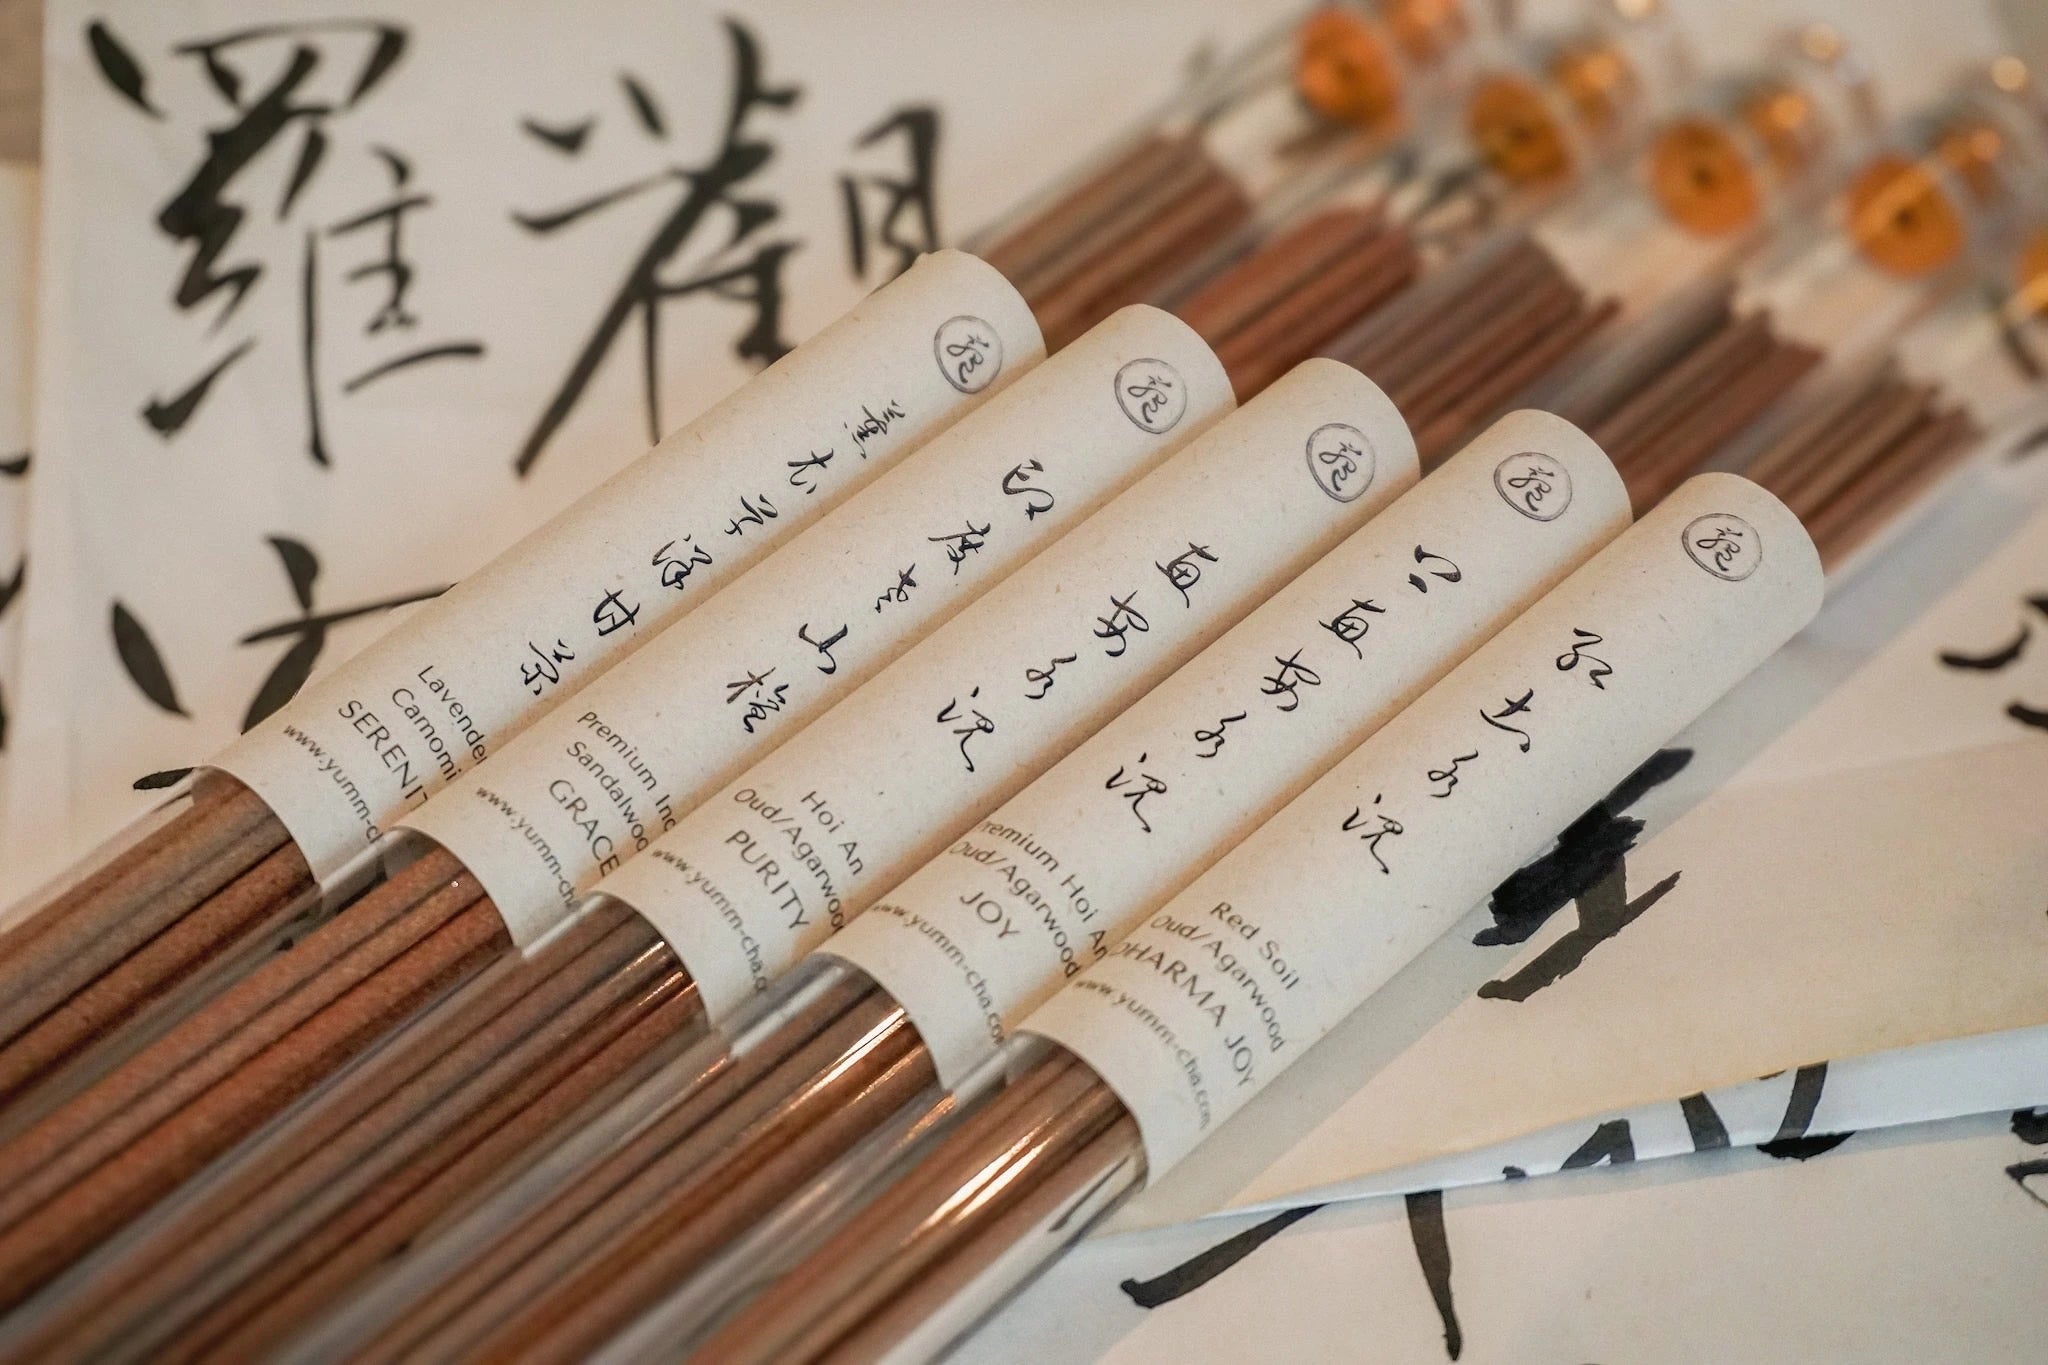 羅 觀
薰衣草洋甘菊
Lavender
Camomi
SERENIT
www.yumm-ch
印度老山檀
Premium Ind
Sandalwoo
GRACE
www.yumm-cha
惠安水沉
Hoi An
Oud/Agarwood
PURITY
www.yumm-cha.c
惠安水沉
Premium Hoi An
Oud/Agarwood
JOY
www.yumm-cha.com
紅土水沉
Red Soil
Oud/Agarwood
DHARMA JOY
www.yumm-cha.com